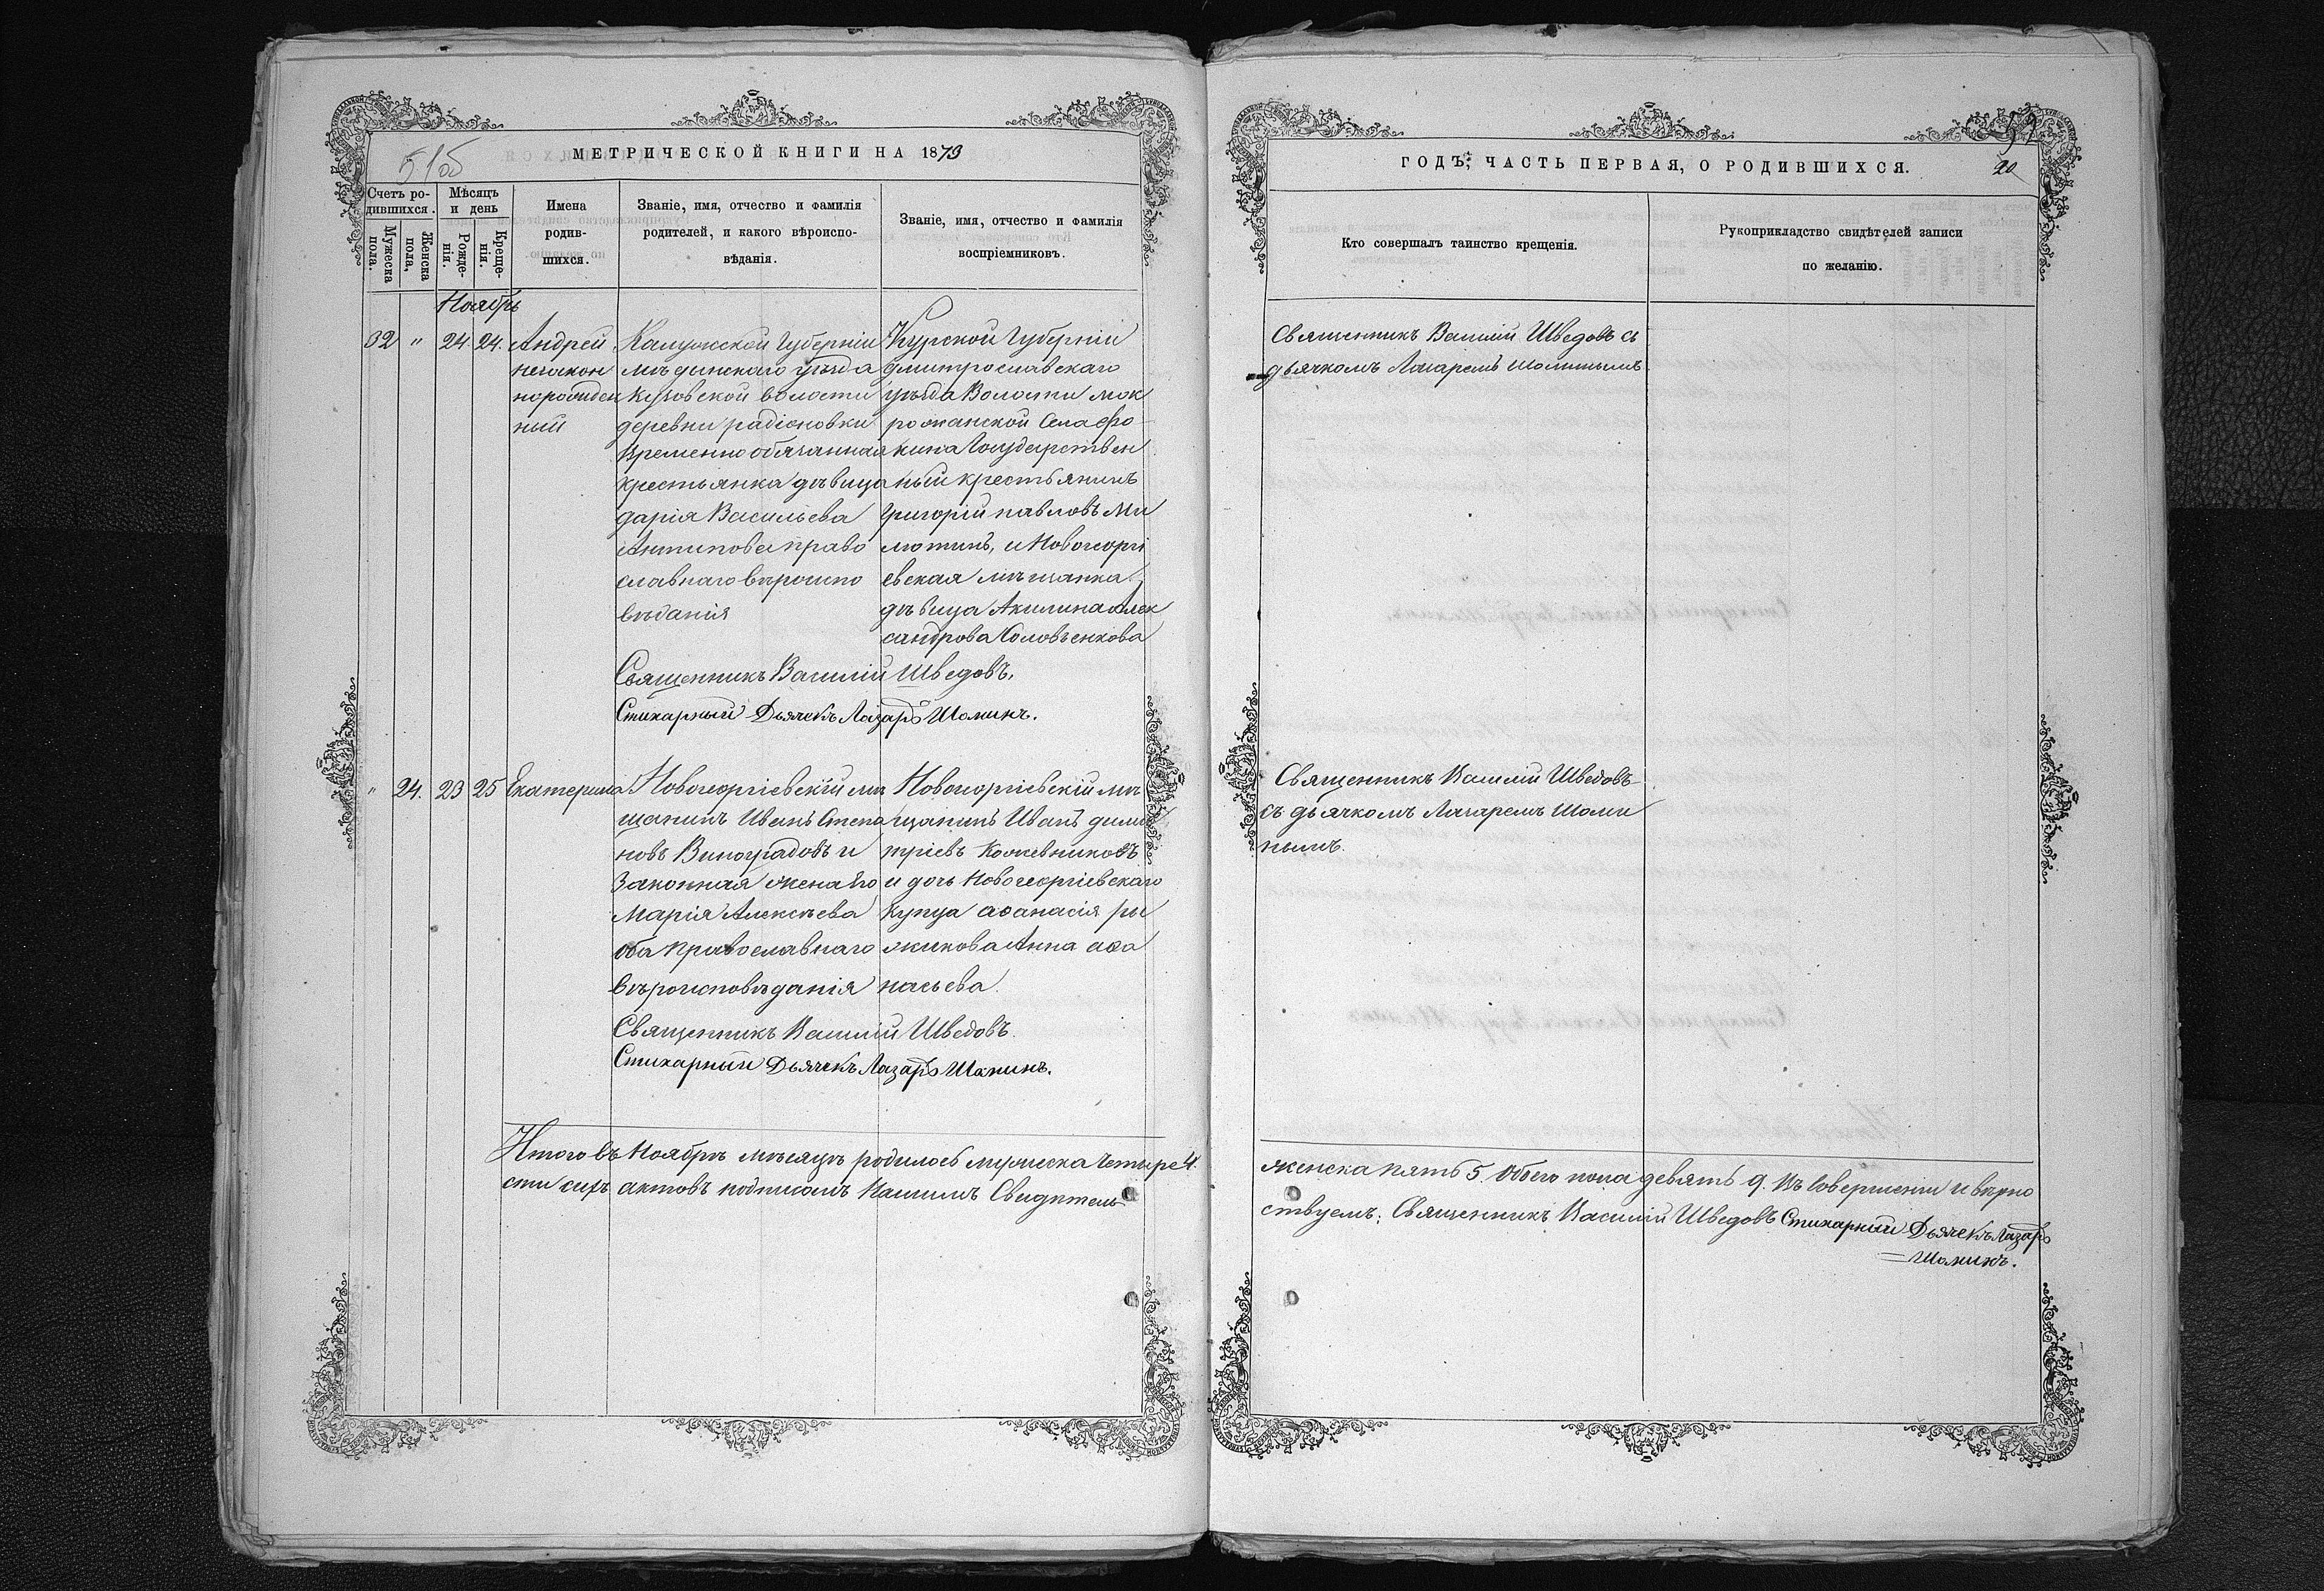 51об
МЕТРИЧЕСКОЙ КНИГИ НА 1873
Счетъ ро-
дившихся.
Мужеска
пола.
Женска
пола,
Мѣсяцъ
и день
Рожде-
нія.
Креще-
нія.
Имена
родив-
шихся.
Званіе, имя, отчество и фамилія
родителей, и какого вѣроиспо-
вѣданія.
Званіе, имя, отчество и фамилія
воспріемниковъ.
Ноябрь
32 " 24 24.
Андрей
незакон
норожден
ный
Калужской Губерніи
мѣдынскаго уѣзда
кузовской волости
деревни радіоновки
Временно обязанная
крестьянка дѣвица
дарія Васильева
Антипова право
славнаго вѣроиспо
вѣданія
Курской Губерніи
дмитрославскаго
уѣзда Волости мок
рожанской Села фо
кина Государствен
ный крестьянинъ
григорій павловъ Ми
лютинъ, и Новогеоргі
евская мѣщанка
дѣвица Акилина Алек
сандрова Соловъенкова
Священникъ Василій Шведовъ.
Стихарный Дьячекъ Лазарь Шоминъ.
" 24. 23 25
Екатерина
Новогеоргіевскій мѣ
щанинъ Иванъ Степа
новъ Виноградовъ и
Законная жена его
Марія Алексѣева
оба Православнаго
вѣроисповѣданія
Новогеоргіевскій мѣ
щанинъ Иванъ дими
тріевъ Кожевниковъ
и дочь Новогеоргіевскаго
купца аѳанасія ры
жикова Анна аѳа
насьева.
Священникъ Василій Шведовъ.
Стихарный Дьячекъ Лазарь Шоминъ.
Итого въ Ноябрѣ мѣсяцѣ родилось мужеска четыре 4.
сти сихъ актовъ подписомъ нашимъ Свидѣтель
52
ГОДЪ, ЧАСТЬ ПЕРВАЯ, О РОДИВШИХСЯ.
20
Кто совершалъ таинство крещенія.
Рукоприкладство свидѣтелей записи
по желанію.
Священникъ Василій Шведовъ съ
дьячкомъ Лазаремъ шоминымъ
Священникъ Василій Шведовъ
съ дьячкомъ Лазаремъ шоми
нымъ.
женска пять 5. Обоего пола девять 9. Въ Совершеніи и вѣрно
ствуемъ: Священникъ Василій Шведовъ Стихарный Дьячекъ Лазарь
Шоминъ.